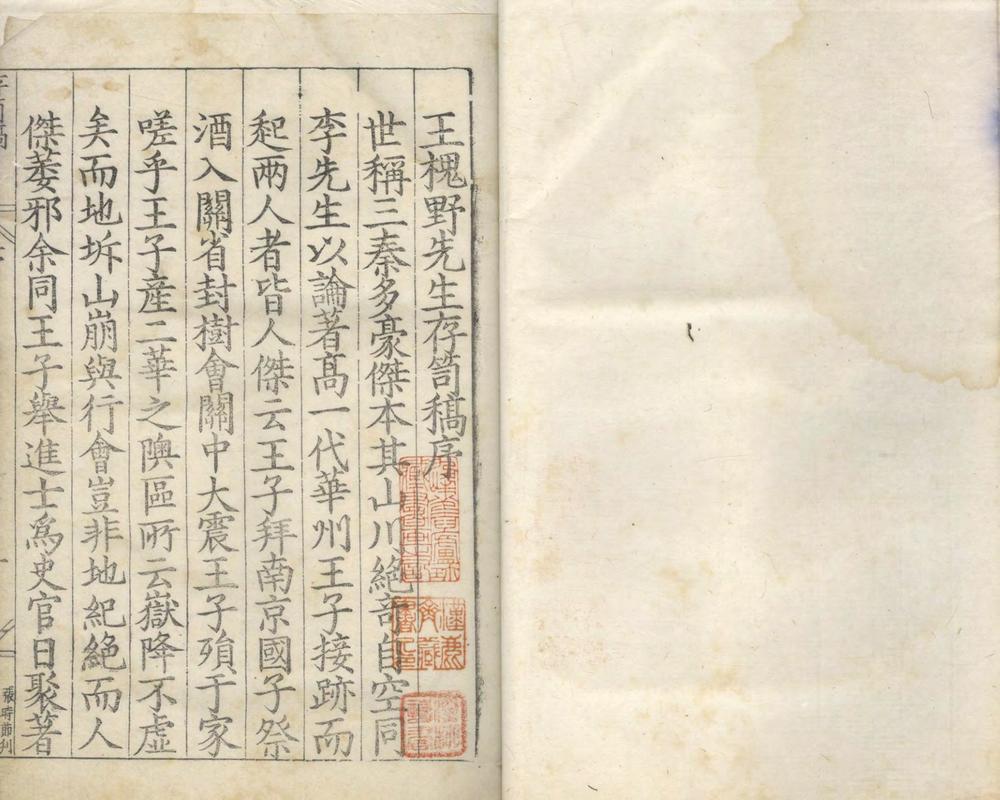 王槐野先生存笥稿序
世稱三秦多豪傑本其山川絕奇自空同
李先生以論著高一代華州王子接跡而
起兩人者皆人傑云王子拜南京國子祭
酒入關省封樹會關中大震王子殞于家
嗟乎王子產二華之隩區所云嶽降不虛
矣而地坼山崩與行會豈非地紀絕而人
傑萎邪余同王子舉進士為史官日聚著
張時節刋